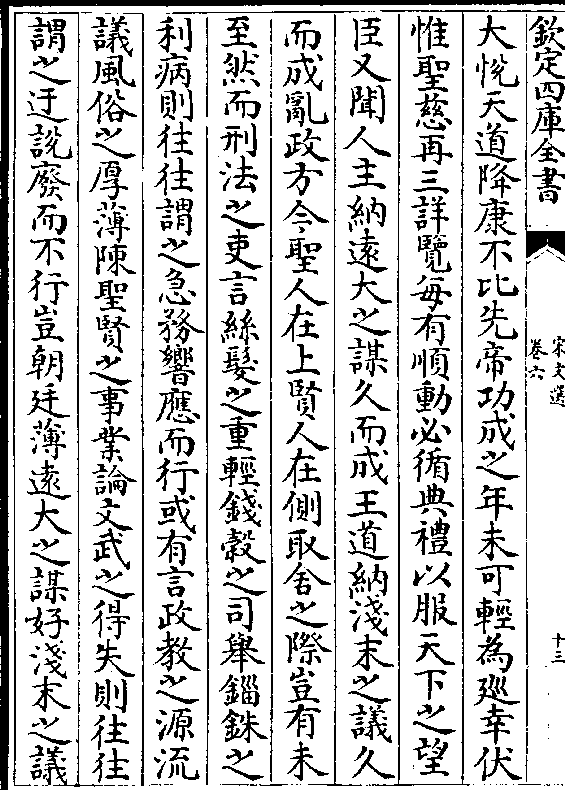 欽定四庫全書
宋文選
卷六
十三
大悅天道降康不比先帝功成之年未可輕為廵幸伏
惟聖慈再三詳覽每有順動必循典禮以服天下之望
臣又聞人主納逺大之謀久而成王道納淺末之議久
而成亂政方今聖人在上賢人在側取舍之際豈有未
至然而刑法之吏言絲髮之重輕錢穀之司舉錙銖之
利病則往往謂之急務響應而行或有言政教之源流
議風俗之厚薄陳聖賢之事業論文武之得失則往往
謂之迂說廢而不行豈朝廷薄逺大之謀好淺末之議